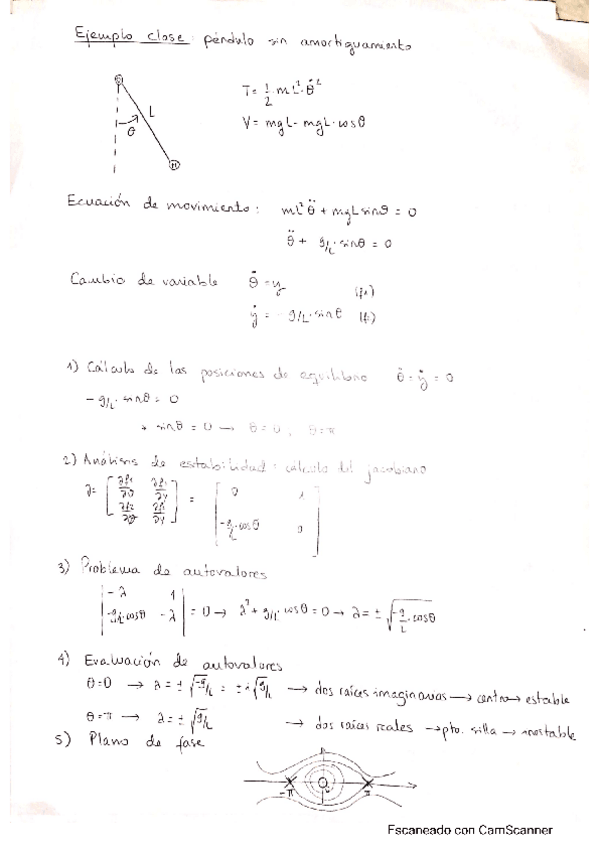 Ejemplo clase: péndulo sin amortiguamiento
T= 1/2 · mL²· θ̇²
V= mgL - mgL·cosθ
L
θ
m
Ecuación de movimiento: mL² θ̈ + mgL sinθ = 0
θ̈ + g/L · sinθ = 0
Cambio de variable θ̇ = y (f₁)
ẏ = - g/L · sinθ (f₂)
1) Cálculo de las posiciones de equilibrio θ̇ = ẏ = 0
- g/L · sinθ = 0
→ sinθ = 0 → θ=0, θ=π
2) Análisis de estabilidad: cálculo del jacobiano
J= [ ∂f₁/∂θ ∂f₁/∂y ; ∂f₂/∂θ ∂f₂/∂y ] = [ 0 1 ; -g/L·cosθ 0 ]
3) Problema de autovalores
| -λ 1 ; -g/L·cosθ -λ | = 0 → λ² + g/L · cosθ = 0 → λ = ± √(-g/L · cosθ)
4) Evaluación de autovalores
θ=0 → λ = ± √(-g/L) = ± i √(g/L) → dos raíces imaginarias → centro → estable
θ=π → λ = ± √(g/L) → dos raíces reales → pto. silla → inestable
5) Plano de fase
-π π
Escaneado con CamScanner